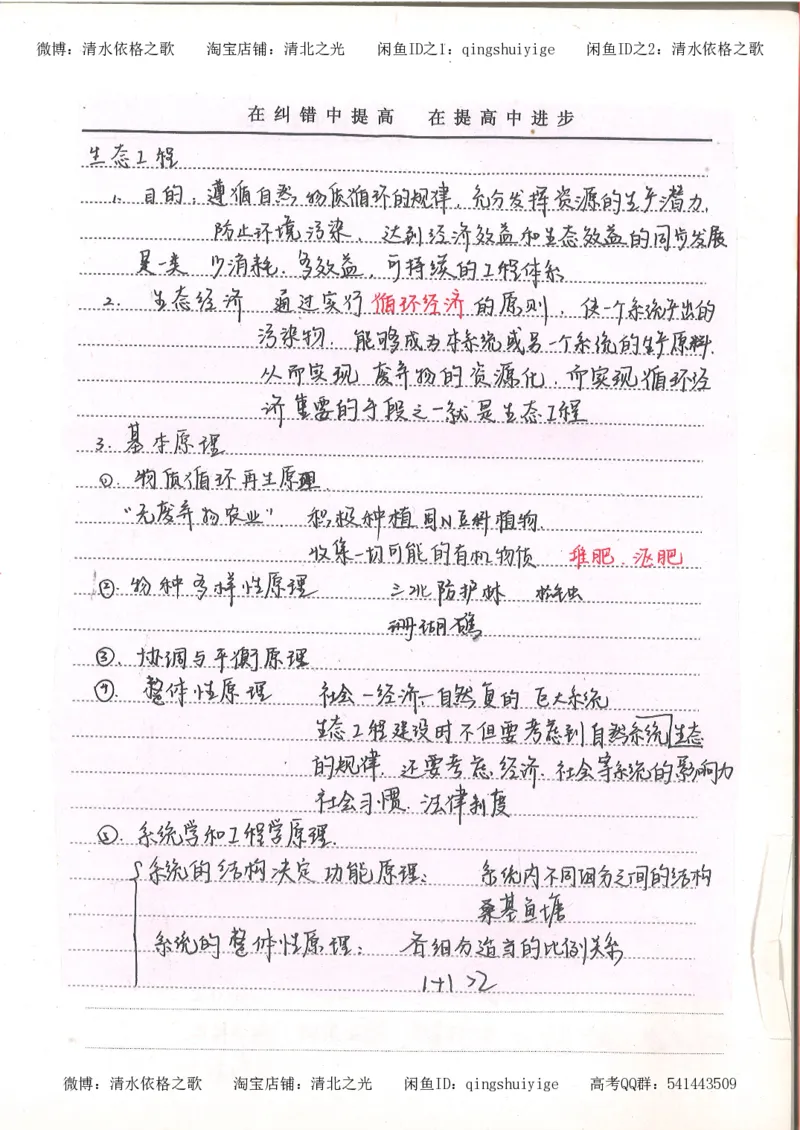 微博：清水依格之歌 淘宝店铺：清北之光 闲鱼ID之1：qingshuiyige 闲鱼ID之2：清水依格之歌
在纠错中提高 在提高中进步
生态工程
1. 目的：遵循自然物质循环的规律，充分发挥资源的生产潜力，
防止环境污染，达到经济效益和生态效益的同步发展
是一类 少消耗，多效益，可持续的工程体系
2. 生态经济 通过实行循环经济的原则，使一个系统产出的
污染物，能够成为本系统或另一个系统的生产原料，
从而实现 废弃物的资源化，而实现循环经
济重要的手段之一就是生态工程
3. 基本原理
① 物质循环再生原理
“无废弃物农业” 积极种植固N豆科植物，
收集一切可能的有机物质 堆肥，沤肥
② 物种多样性原理 三北防护林 松毛虫
珊瑚礁
③. 协调与平衡原理
④. 整体性原理 社会－经济－自然复的 巨大系统
生态工程建设时不但要考虑到自然系统生态
的规律，还要考虑经济，社会等系统的影响力
社会习惯，法律制度
⑤. 系统学和工程学原理
系统的结构决定功能原理： 系统内不同组分之间的结构
桑基鱼塘
系统的整体性原理： 各组分适当的比例关系
1+1>2
微博：清水依格之歌 淘宝店铺：清北之光 闲鱼ID：qingshuiyige 高考QQ群：541443509